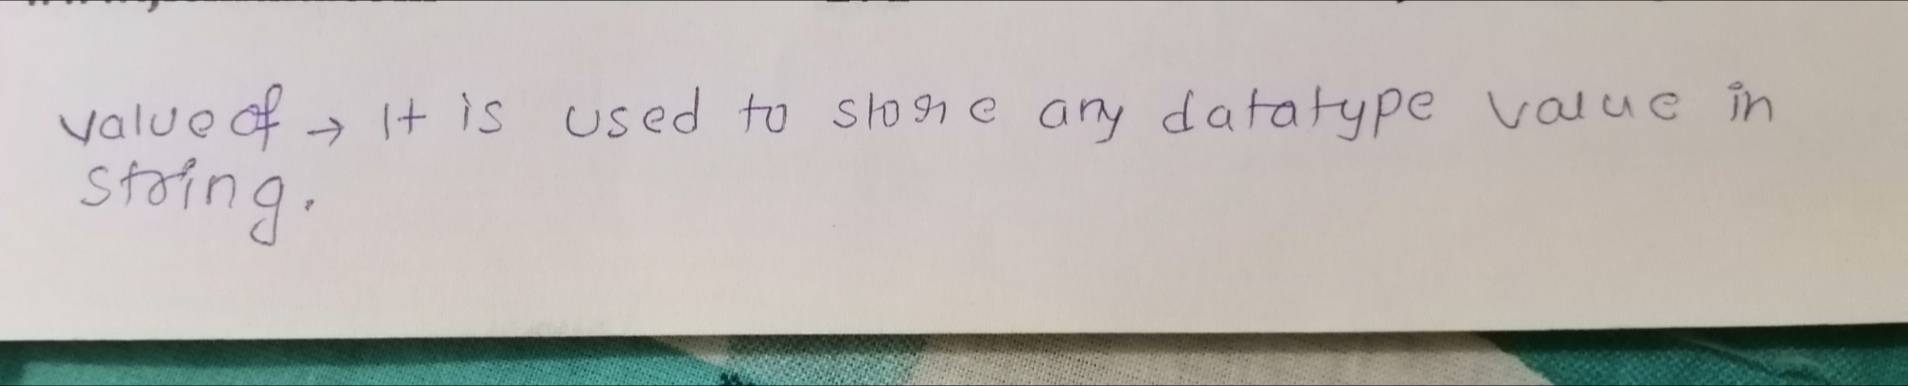 valueof → It is used to store any datatype value in
string.